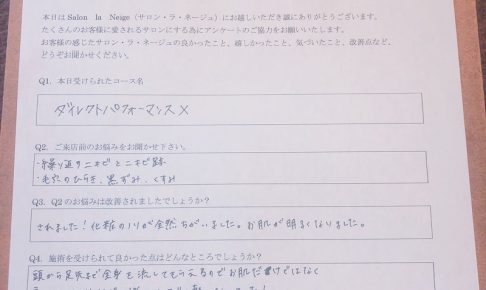 本日は Salon la Neige（サロン・ラ・ネージュ）にお越しいただき誠にありがとうございます。
たくさんのお客様に愛されるサロンにする為にアンケートのご協力をお願いいたします。
お客様の感じたサロン・ラ・ネージュの良かったこと、嬉しかったこと、気づいたこと、改善点など、
どうぞお聞かせください。
Q1. 本日受けられたコース名
ダイレクトパフォーマンスX
Q2. ご来店前のお悩みをお聞かせ下さい。
・繰り返すニキビとニキビ跡
・毛穴のひらき、黒ずみ、くすみ
Q3. Q2のお悩みは改善されましたでしょうか？
されました！化粧のノリが全然ちがいました。お肌が明るくなりました。
Q4. 施術を受けられて良かった点はどんなところでしょうか？
頭から足先まで全身を流してもらえるのでお肌だけではなく